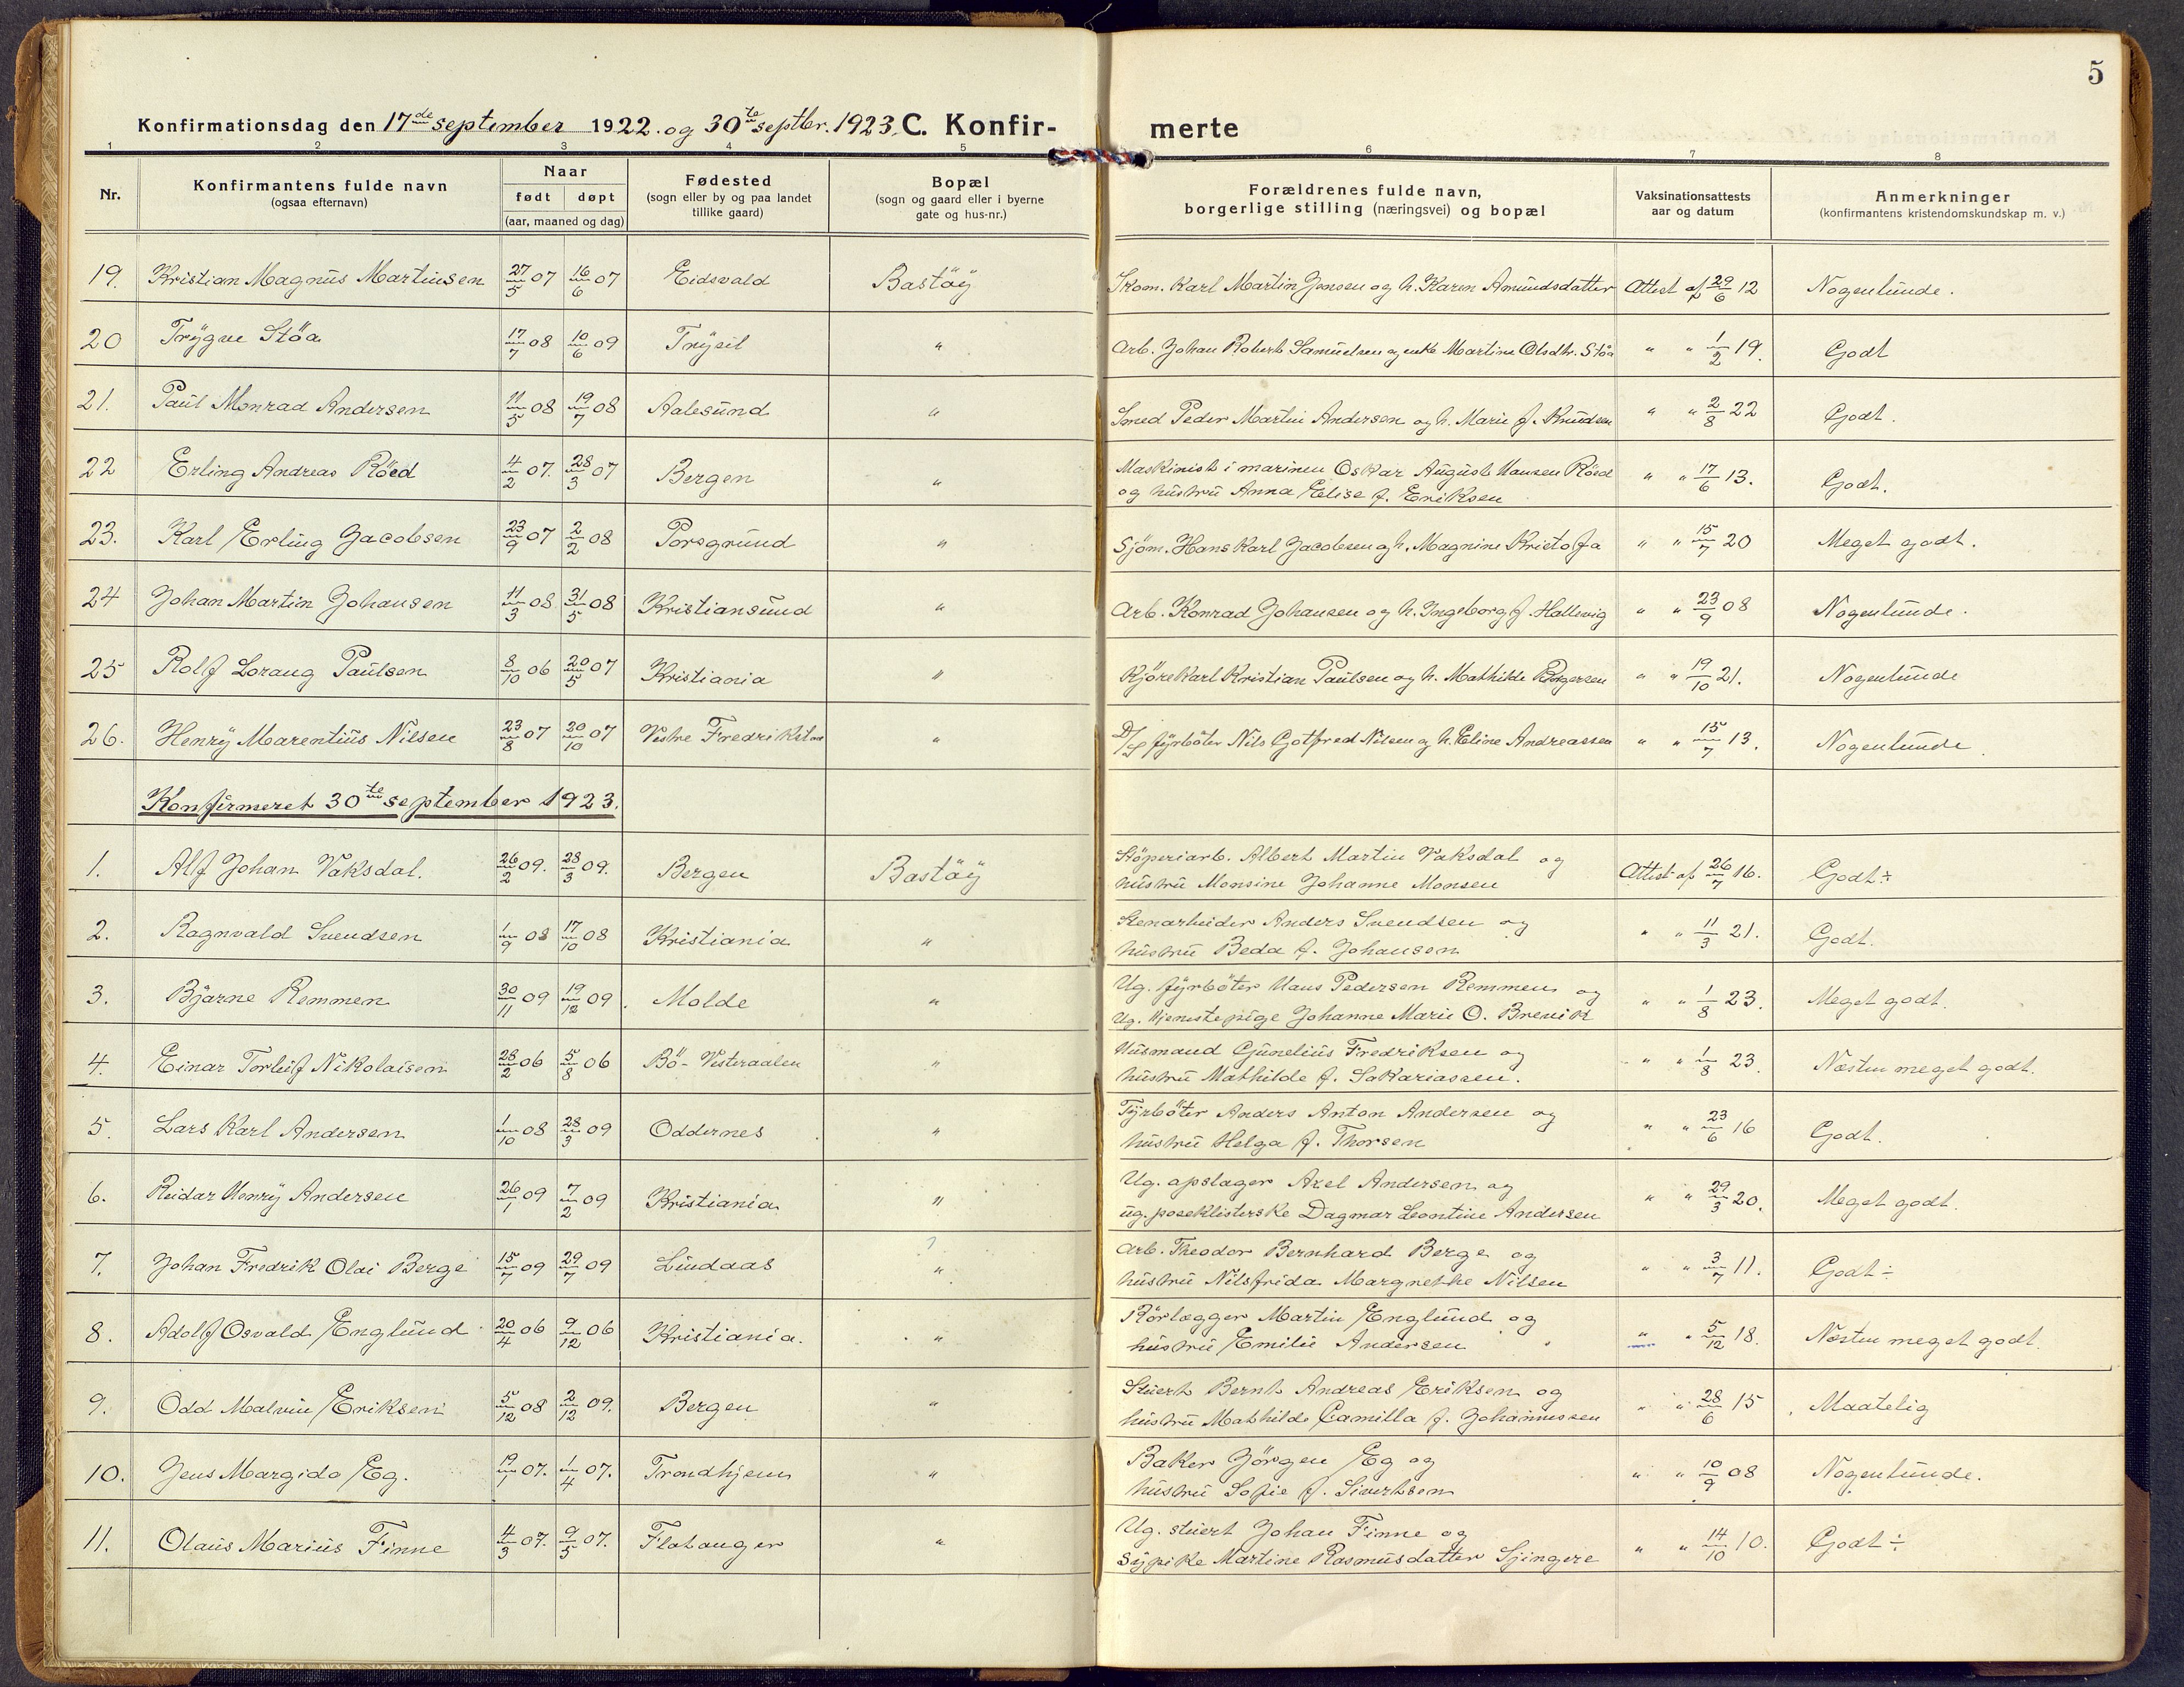 5
Konfirmationsdag den 17de september 1922. og 30te septbr. 1923. C. Konfir- merte
1 2 3 4 5 6 7 8
Nr.
Konfirmantens fulde navn
(ogsaa efternavn)
Naar
født døpt
(aar, maaned og dag)
Fødested
(sogn eller by og paa landet
tillike gaard)
Bopæl
(sogn og gaard eller i byerne
gate og hus-nr.)
Forældrenes fulde navn,
borgerlige stilling (næringsvei) og bopæl
Vaksinationsattests
aar og datum
Anmerkninger
(konfirmantens kristendomskundskap m. v.)
19. Kristian Magnus Martinsen 27/5 07 16/6 07 Eidsvald Bastöy Skom. Karl Martin Jensen og h. Karen Amundsdatter Attest af 29/6 12 Nogenlunde.
20 Trygve Stöa 17/7 08 10/6 09 Trysil " Arb. Johan Robert Samuelsen og enke Martine Olsdtr. Stöa " " 1/2 19. Godt
21. Paul Monrad Andersen 11/5 08 19/7 08 Aalesund " Smed Peder Martin Andersen og h. Marie f. Knudsen " " 2/8 22 Godt.
22 Erling Andreas Röed 4/2 07. 28/3 07 Bergen " Maskinist i marinen Oskar August Hansen Röed
og hustru Anna Elise f. Eriksen " " 17/6 13. Godt.
23. Karl Erling Jacobsen 23/9 07 2/2 08 Porsgrund " Sjöm. Hans Karl Jacobsen og h. Magnine Kristofa " " 15/7 20 Meget godt.
24 Johan Martin Johansen 11/3 08 31/5 08 Kristiansund " Arb. Konrad Johansen og h. Ingeborg f. Hallevig " " 23/9 08 Nogenlunde.
25 Rolf Lorang Paulsen 8/10 06 20/5 07 Kristiania " Kjöre Karl Kristian Paulsen og h. Mathilde Birgersen " " 19/10 21. Nogenlunde
26. Henry Marentius Nilsen 23/8 07 20/10 07 Vestre Fredrikstad " D/S fyrböter Nils Gotfred Nilsen og h. Eline Andreassen " " 15/7 13. Nogenlunde.
Konfirmeret 30te september 1923.
1. Alf Johan Vaksdal. 26/2 09. 28/3 09. Bergen Bastöy Stöperiarb. Albert Martin Vaksdal og
hustru Monsine Johanne Monsen Attest af 26/7 16. Godt÷
2. Ragnvald Svendsen 1/9 08 17/10 08 Kristiania " Stenarbeider Anders Svendsen og
hustru Beda f. Johansen " " 11/3 21. Godt.
3. Bjarne Remmen 30/11 09 19/12 09. Molde " Ug. fyrböter Hans Pedersen Remmen og
ug. tjenestepige Johanne Marie O. Brevik " " 1/8 23. Meget godt.
4. Einar Torleif Nikolaisen 28/2 06 5/8 06 Bö - Vesteraalen " Husmand Gunelius Fredriksen og
hustru Mathilde f. Sakariassen. " " 1/8 23. Næsten meget godt.
5. Lars Karl Andersen 1/10 08 28/3 09 Oddernes " Fyrböter Anders Anton Andersen og
hustru Helga f. Thorsen " " 23/6 16 Godt.
6. Reidar Henry Andersen 26/1 09 7/2 09 Kristiania " Ug. opslager Axel Andersen og
ug. poseklisterske Dagmar Leontine Andersen " " 29/3 20. Meget godt.
7. Johan Fredrik Olai Berge 15/7 09 29/7 09 Lindaas " Arb. Theodor Bernhard Berge og
hustru Nilsfrida Margrethe Nilsen " " 3/7 11. Godt÷
8. Adolf Osvald Englund 20/4 06 9/12 06 Kristiania. " Rörlægger Martin Englund og
hustru Emilie Andersen " " 5/12 18. Næsten meget godt.
9. Odd Malvin Eriksen 5/12 08 2/12 09. Bergen " Stuert Bernt Andreas Eriksen og
hustru Mathilde Camilla f. Johannessen " " 28/6 15 Maatelig
10. Jens Margido Eg. 19/1 07. 1/4 07. Trondhjem " Baker Jörgen Eg og
hustru Sofie f. Sivertsen " " 10/9 08 Nogenlunde.
11. Olaus Marius Finne 4/3 07. 9/5 07. Flatanger " Ug. stuert Johan Finne og
sypike Martine Rasmusdatter " " 14/10 10. Godt÷